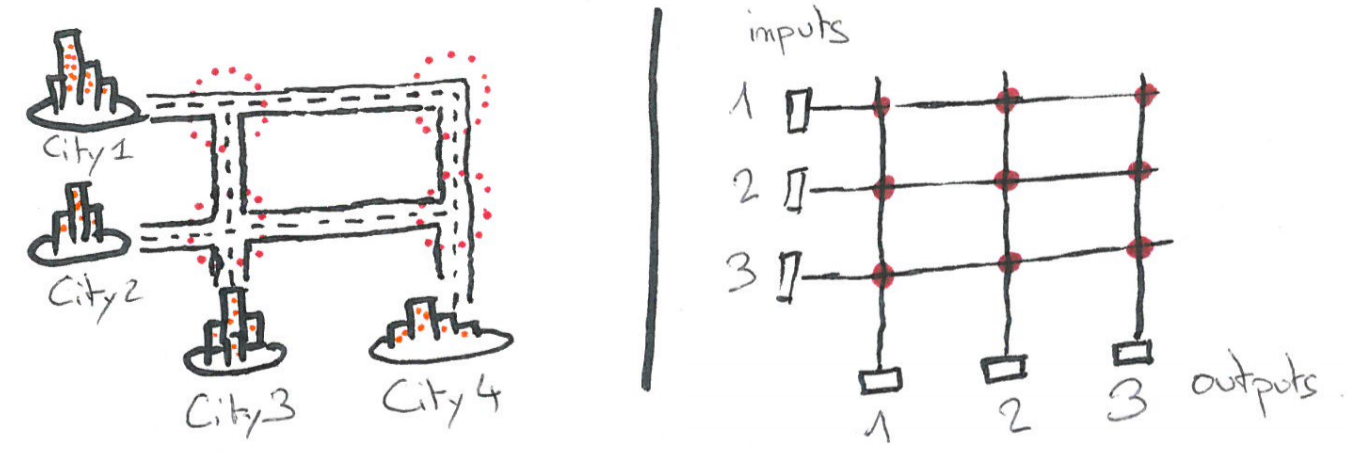 City 1
City 2
City 3
City 4
inputs
1
2
3
1
2
3
outputs